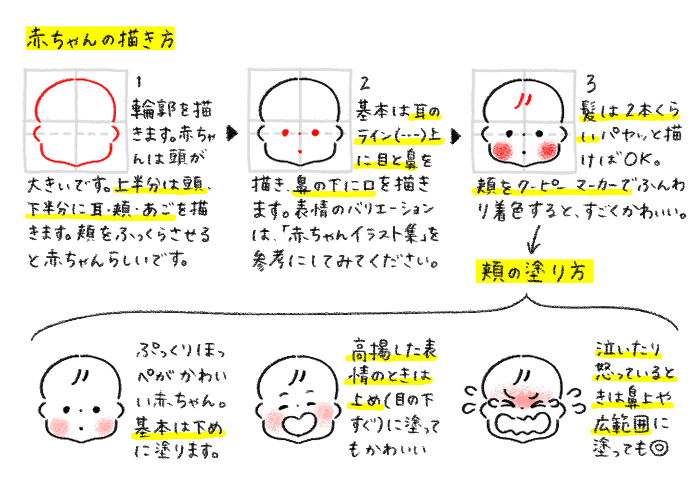 赤ちゃんの描き方
1
輪郭を描
きます。赤ちゃ
んは頭が
大きいです。上半分は頭、
下半分に耳・頬・あごを描
きます。頬をふっくらさせる
と赤ちゃんらしいです。
2
基本は耳の
ライン(---)上
に目と鼻を
描き、鼻の下に口を描き
ます。表情のバリエーション
は、「赤ちゃんイラスト集」を
参考にしてみてください。
3
髪は2本くら
いパヤッと描
けばOK。
頬をクーピーマーカーでふんわ
り着色すると、すごくかわいい。
頬の塗り方
ぷっくりほっ
ぺがかわい
い赤ちゃん。
基本は下め
に塗ります。
高揚した表
情のときは
上め(目の下
すぐ)に塗って
もかわいい
泣いたり
怒っていると
きは鼻上や
広範囲に
塗っても◎